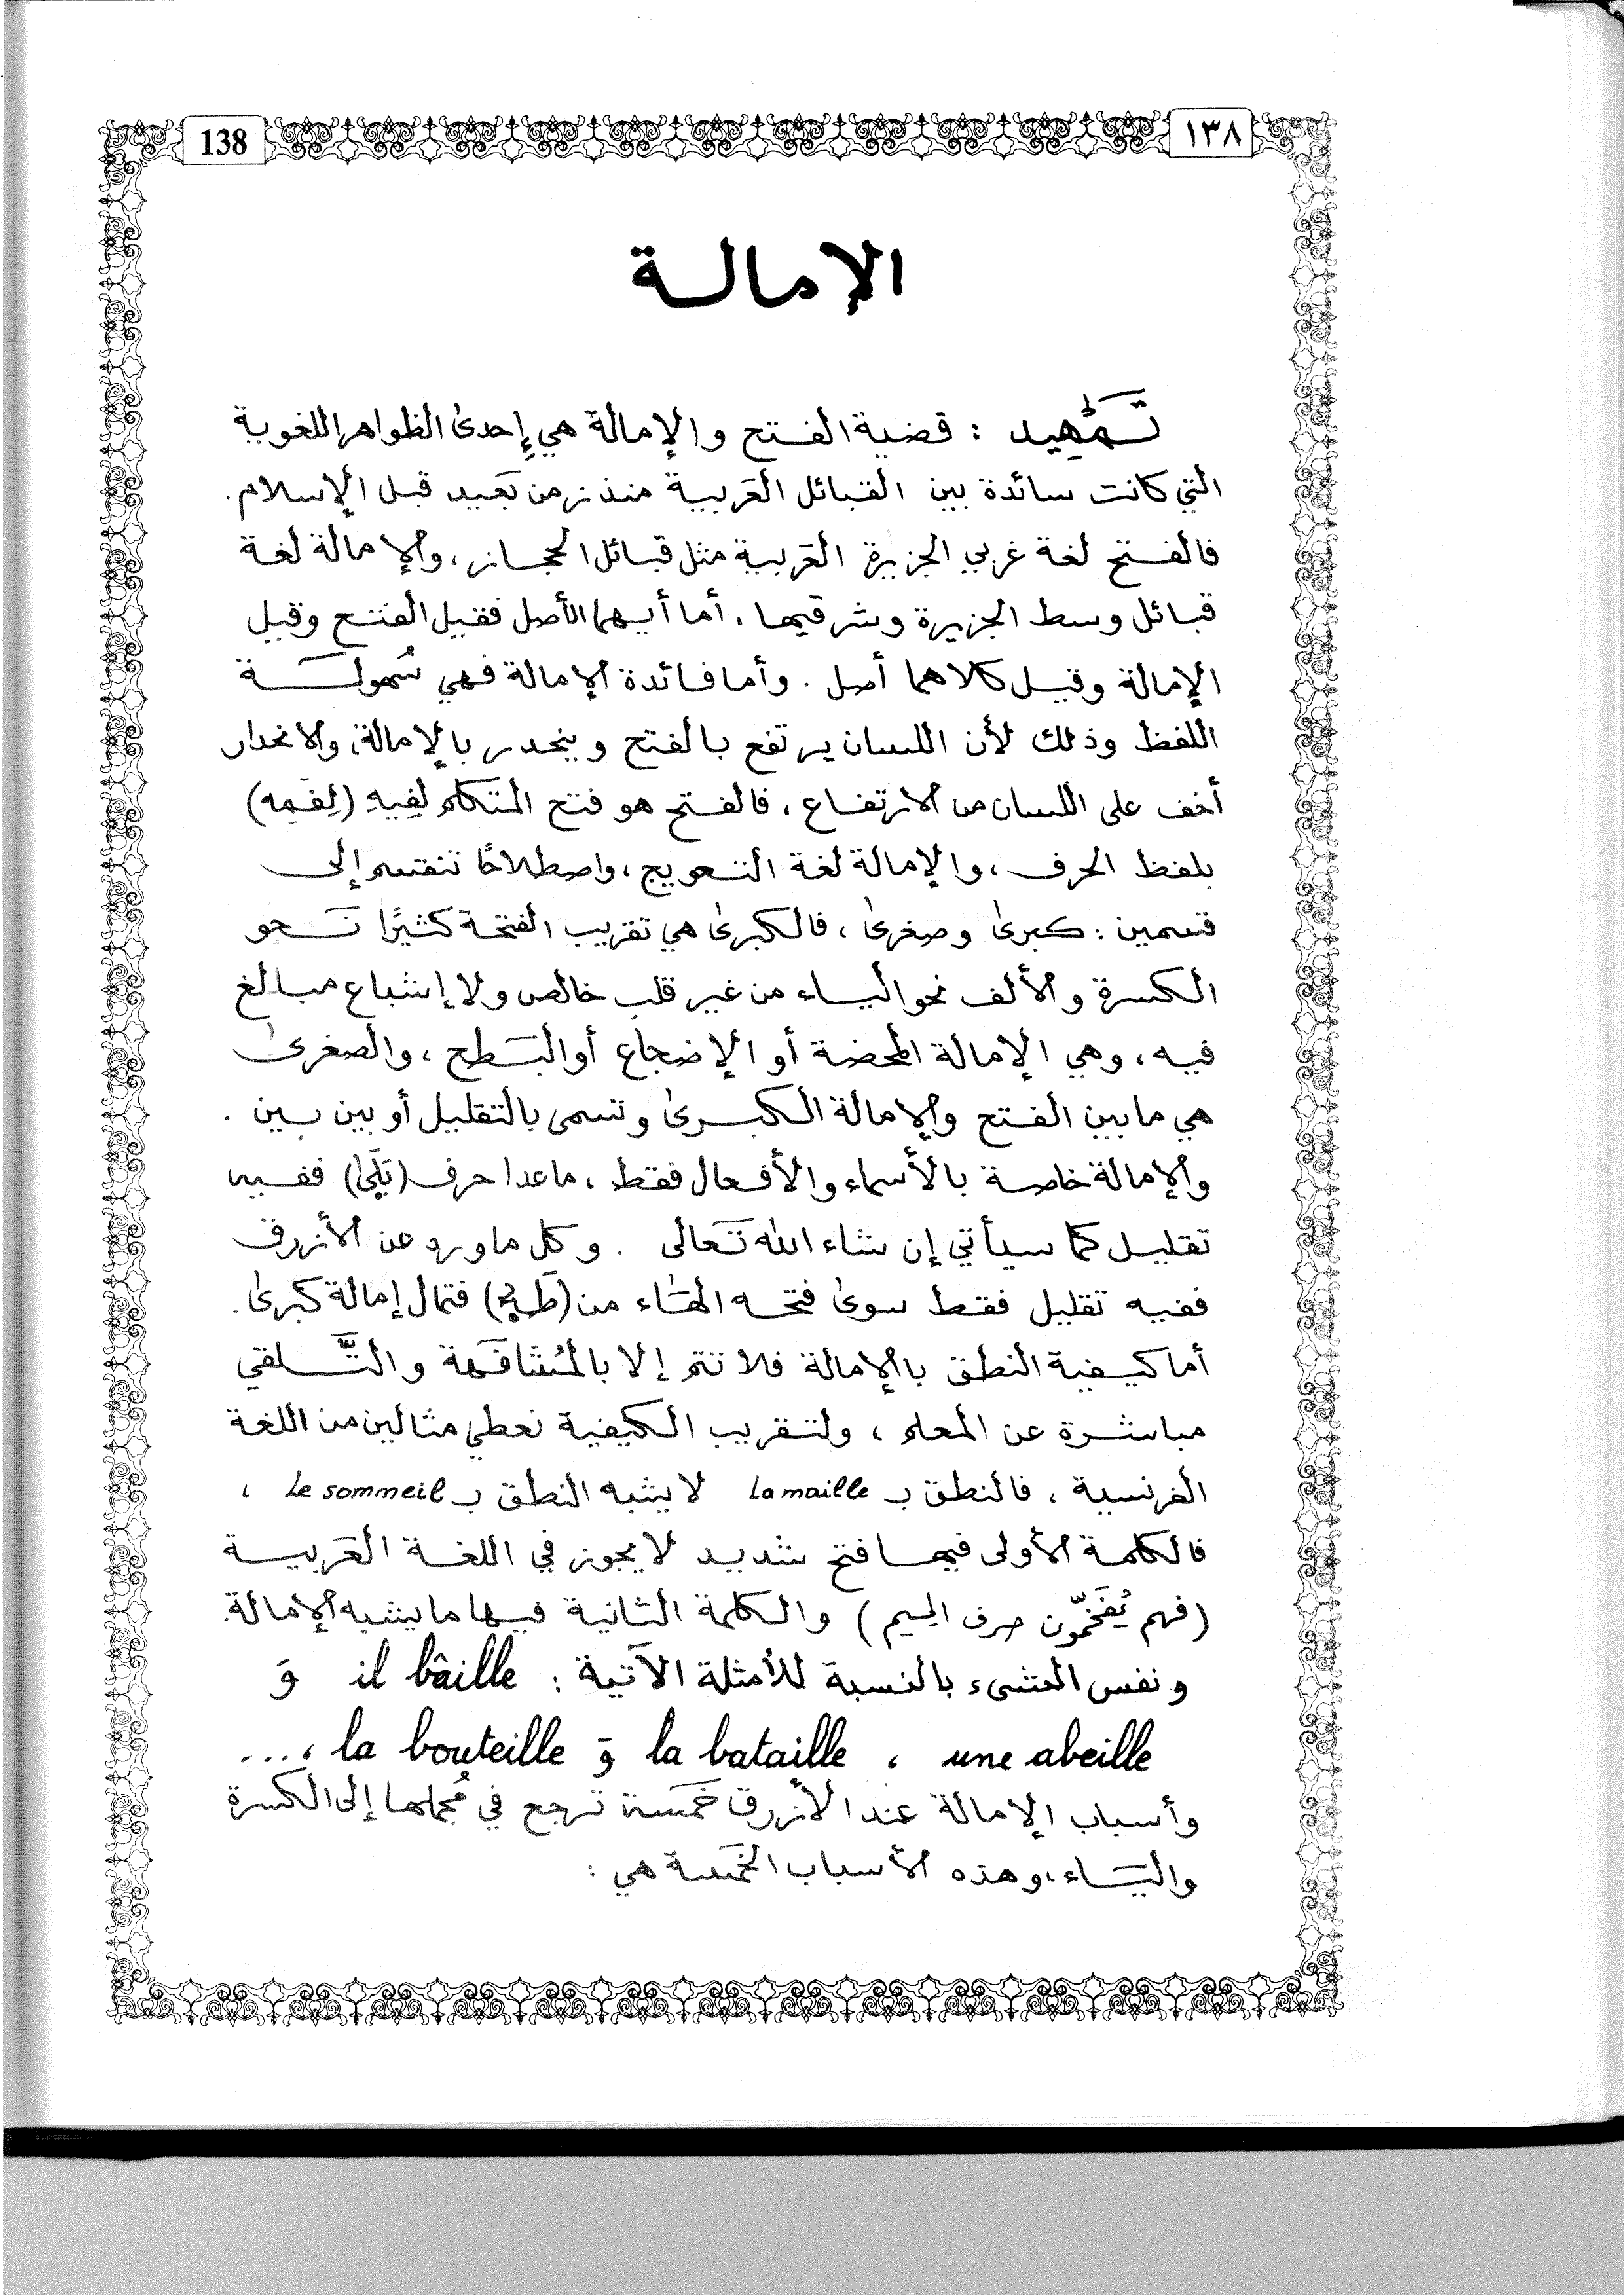 138
١٣٨
الإمالة
تَمْهِيد : قضية الفتح والإمالة هي إِحدىٰ الظواهر اللغوية
التي كانت سائدة بين القبائل العَربية منذ زمن بَعيد قبل الإسلام.
فالفتح لغة غربي الجزيرة العَربية مثل قبائل الحجاز، والإمالة لغة
قبائل وسط الجزيرة وشرقيها. أما أيهما الأصل فقيل الفتح وقيل
الإمالة وقيل كلاهما أصل. وأما فائدة الإمالة فهي سُهولَة
اللفظ وذلك لأن اللسان يرتفع بالفتح وينحدر بالإمالة، والانحدار
أخف على اللسان من الارتفاع، فالفتح هو فتح المتكلم لِفِيهِ (لِفَمِه)
بلفظ الحرف، والإمالة لغة التعويج، واصطلاحًا تنقسم إلى
قسمين: كبرىٰ وصغرىٰ، فالكبرىٰ هي تقريب الفتحة كثيرًا نَحو
الكسرة والألف نحو الياء من غير قلب خالص ولا إشباع مبالغ
فيه، وهي الإمالة المحضة أو الإضجاع أو البَطح، والصغرىٰ
هي ما بين الفتح والإمالة الكبرىٰ وتسمى بالتقليل أو بين بين.
والإمالة خاصة بالأسماء والأفعال فقط، ماعدا حرف (بَلَىٰ) ففيه
تقليل كما سيأتي إن شاء الله تَعالى. وكل ما ورد عن الأزرق
ففيه تقليل فقط سوىٰ فتحه الهَاء من (طَهِ) فتمال إمالة كبرىٰ.
أما كيفية النطق بالإمالة فلا تتم إلا بالمُشافَهة والتَّلقي
مباشرة عن المعلم، ولتقريب الكيفية نعطي مثالين من اللغة
الفرنسية، فالنطق بـ La maille لا يشبه النطق بـ Le sommeil ،
فالكلمة الأولى فيها فتح شديد لا يجوز في اللغة العَربية
(فهم يُفَخّمون حرف الميم) والكلمة الثانية فيها ما يشبه الإمالة.
ونفس الشيء بالنسبة للأمثلة الآتية : il bâille وَ
une abeille ، la bataille وَ la bouteille ، ....
وأسباب الإمالة عند الأزرق خَمسة ترجع في مُجملها إلى الكسرة
واليَاء، وهذه الأسباب الخَمسة هي :